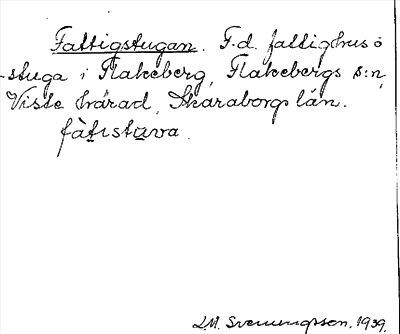 Fattigstugan. F.d. fattighus o
-stuga i Flakeberg, Flakebergs s:n,
Viste härad, Skaraborgs län.
fàtistuva.
L.M. Svenungsson. 1939.